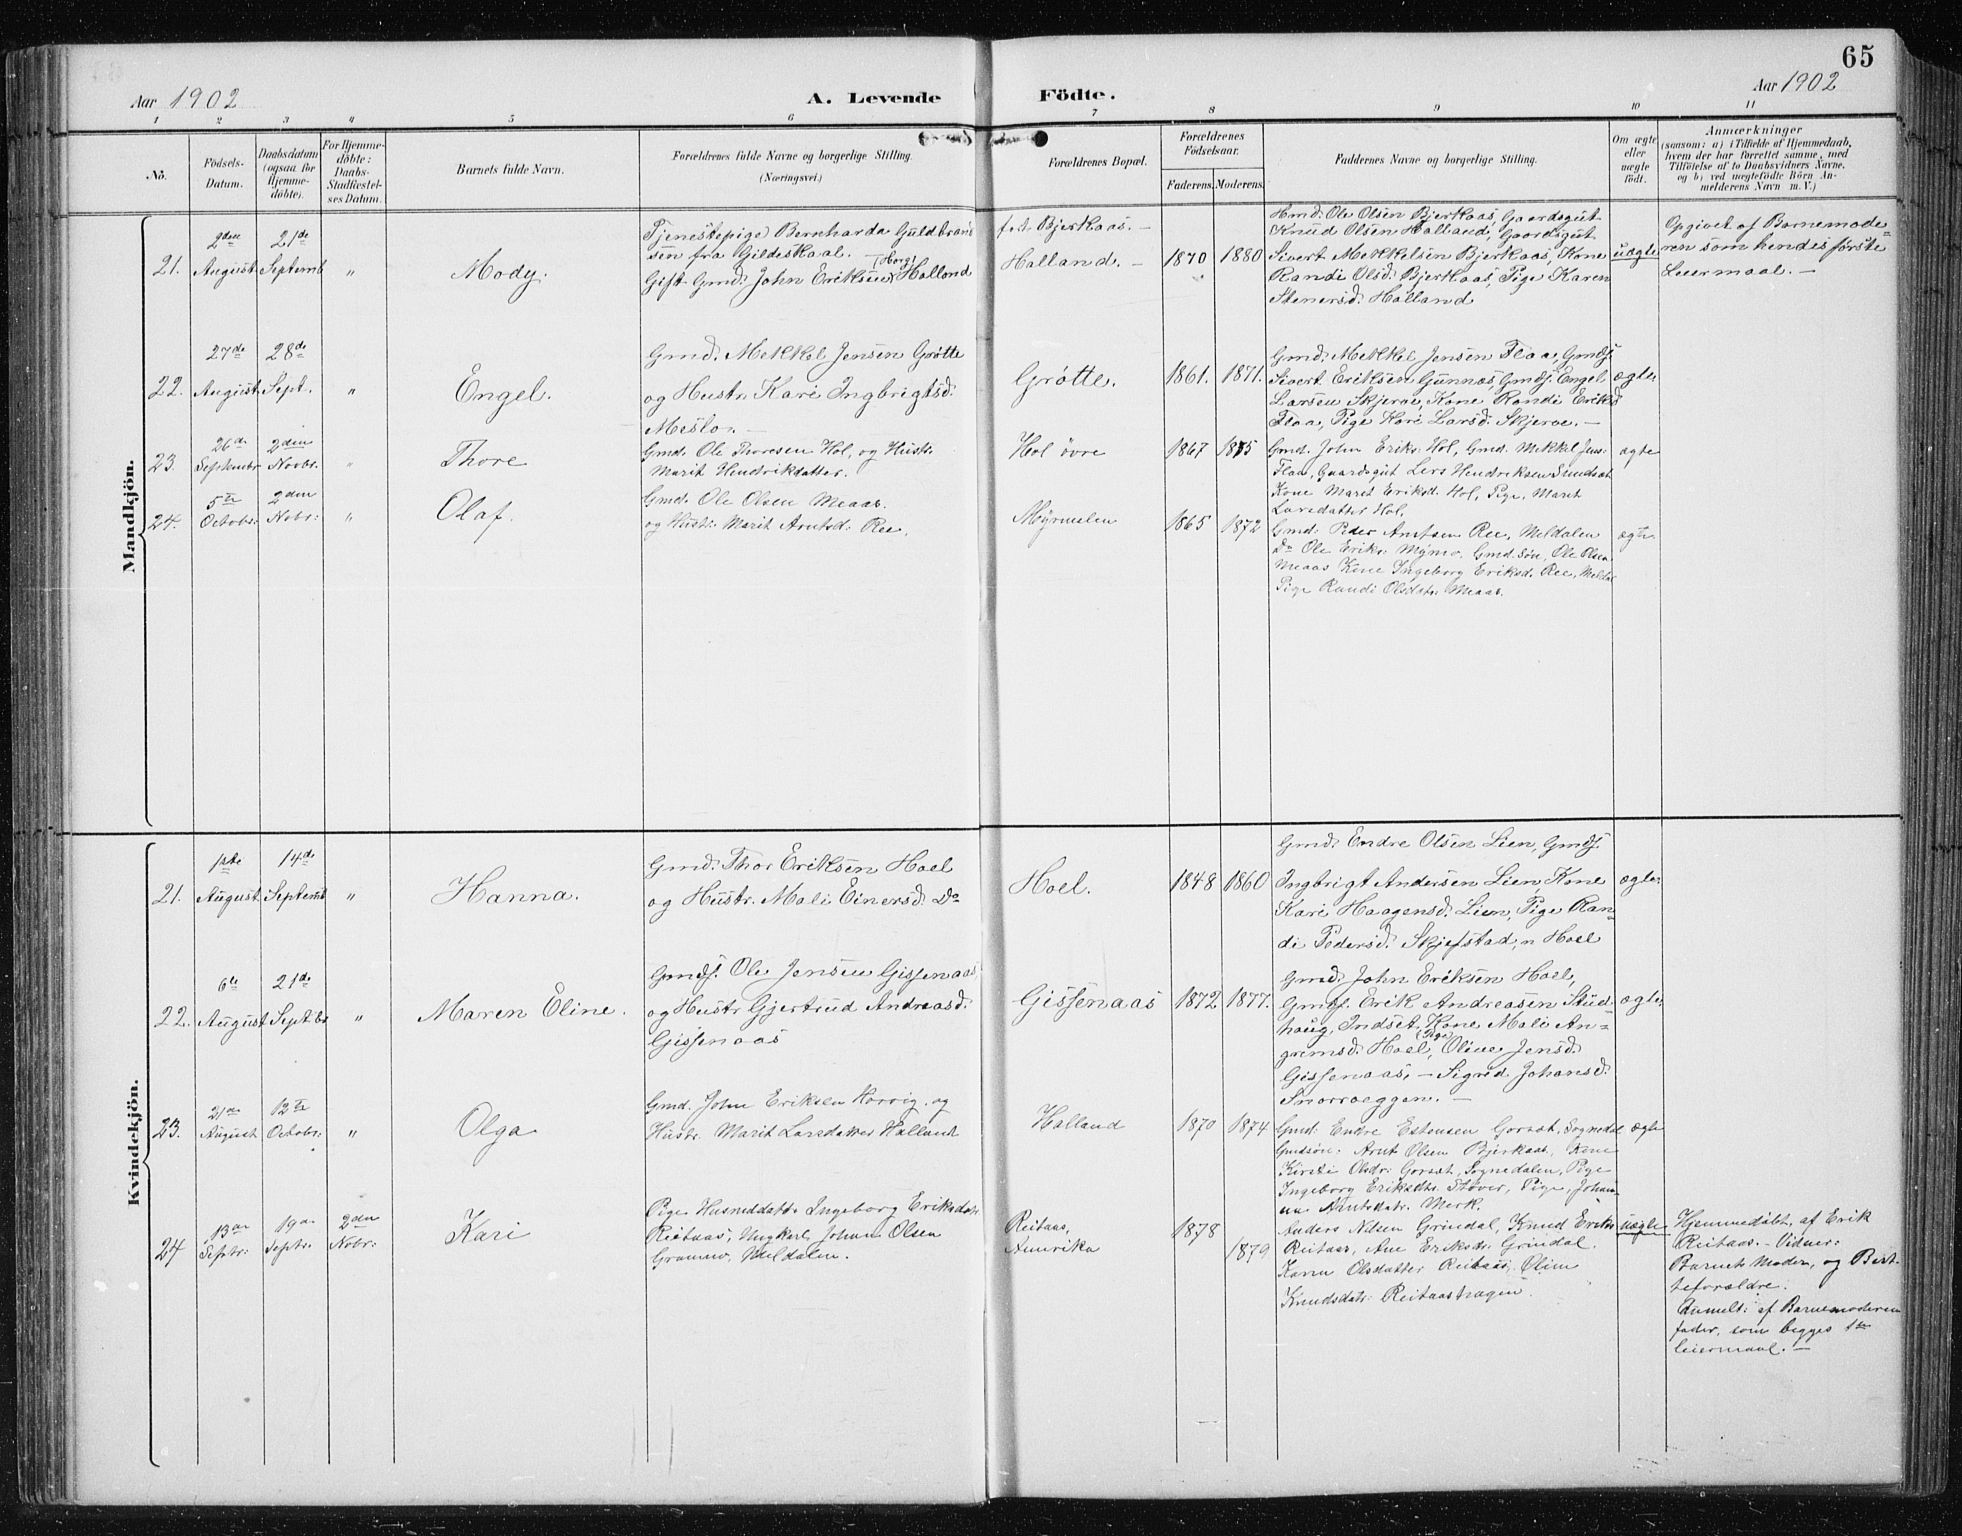 65
Aar 1902
A. Levende
Födte.
Aar 1902
1 2 3 4 5 6 7 8 9 10 11
Nö.
Födsels-Datum.
Daabsdatum (ogsaa for Hjemme-döbte).
For Hjemme-döbte: Daabs-Stadfæstel-ses Datum.
Barnets fulde Navn.
Forældrenes fulde Navne og borgerlige Stilling. (Næringsvei.)
Forældrenes Bopæl.
Forældrenes Födselsaar.
Faderens. Moderens.
Faddernes Navne og borgerlige Stilling.
Om ægte eller uægte födt.
Anmærkninger
(saasom: a) i Tilfælde af Hjemmedaab,
hvem der har forrettet samme, med
Tilföielse af to Daabsvidners Navne,
og b) ved uægtefödte Börn An-
melderens Navn m. V.)
Mandkjön.
21.
2den August
21de Septemb
"
Mody.
Tjenestepige Bernharda Guldbrand
sen fra Gildeskaal.
Gift Gmd. John Eriksen (Horg) Halland
f. t. Bjerkaas. -
Halland. -
1870
1880
Gmd. Ole Olsen Bjerkaas, Gaardsgut
Knud Olsen Halland, Gaardsgut
Sivert Mekkelsen Bjerkaas, Kone
Randi Olsd. Bjerkaas, Pige Karen
Stenersd. Halland
uægte
Opgivet af Barnemode=
ren som hendes förste
Leiermaal. -
22.
27de August
28de Sept.
"
Engel.
Gmd. Mekkel Jensen Grøtte
og Hustr. Kari Ingbrigtsd.
Meslo. -
Grøtte.
1861.
1871.
Gmd. Mekkel Jensen Floa, Gmdf.
Sivert Eriksen Gunnas, Gmdf. Engel
Larsen Skjerve, Kone Randi Eriksd
Floa, Pige Kari Larsd. Skjerve. -
ægte
23.
26de Septembr
2den Novbr.
"
Thore
Gmd. Ole Thoresen Hol, og Hustr.
Marit Hendrikdatter.
Hol övre
1867
1875
Gmd. John Eriks. Hol, Gmd. Mekkel Jens.
Floa, Gaardsgut Lars Hendriksen Sundsat
Kone Marit Eriksd. Hol, Pige, Marit
Larsdatter Hol.
ægte
24.
5te Octobr:
2den Nobr:
"
Olaf.
Gmd. Ole Olsen Meaas.
og Hustr. Marit Arntsd. Ree.
Myrmelen
1865
1872
Gmd. Peder Arntsen Ree, Meldalen
Do Ole Eriks. Mymo, Gmd. Sön, Ole Olsen
Meaas Kone Ingeborg Eriksd. Ree, Meldal
Pige Randi Olsdatr. Meaas.
ægte
Kvindekjön.
21.
1ste August
14de Septemb
"
Hanna.
Gmd. Thor Eriksen Hoel
og Hustr. Mali Einersd. Do
Hoel.
1848
1860
Gmd. Endre Olsen Lien, Gmdf.
Ingbrigt Andersen Lien, Kone
Kari Haagensd. Lien, Pige Ran=
di Pedersd. Skjefstad, n Hoel
ægte
22.
6te August
21de Septbr
"
Maren Eline.
Gmdf. Ole Jensen Gissenaas
og Hustr Gjertrud Andreasd.
Gissenaas
Gissenaas
1872
1877.
Gmd. John Eriksen Hoel,
Gmdf. Erik Andreasen Stud=
haug, Indset, Kone Mali An=
gremsd. Hoel, (Pige) Oline Jensd.
Gissenaas, - Sigrid Johansd.
Snorroeggen. -
ægte
23.
21de August
12te Octobr:
"
Olga
Gmd. John Eriksen Horvig, og
Hustr. Marit Larsdatter Halland
Halland
1870
1874
Gmd. Endre Estensen Gorsat, Sognedal
Gmdsön: Arnt Olsen Bjerkaas, Kone
Kirsti Olsdr. Gorsæt, Sognedalen, Pige
Ingeborg Eriksdtr. Stöver, Pige, Johan=
na Arntsdatr. Merk.
ægte
24
13de Septr:
19de Septr.
2den Nobr:
Kari
Pige. Husmddatr. Ingeborg Eriksdatr.
Reitaas, Ungkarl Johan Olsen
Gramo, Meldalen.
Reitaas,
Amerika
1878
1879
Anders Nilsen Grindal, Knud Eriks
Reitaas, Ane Eriksdr. Grindal.
Karen Olsdatter Reitaas, Oline
Knudsdatr: Reitaashagen.
uægte
Hjemmedöbt, af Erik
Reitaas. - Vidner:
Barnets Moder, og Bed-
steforældre.
Anmelt: af Barnemoderen
fader, som begges 1ste
leiermaal. -